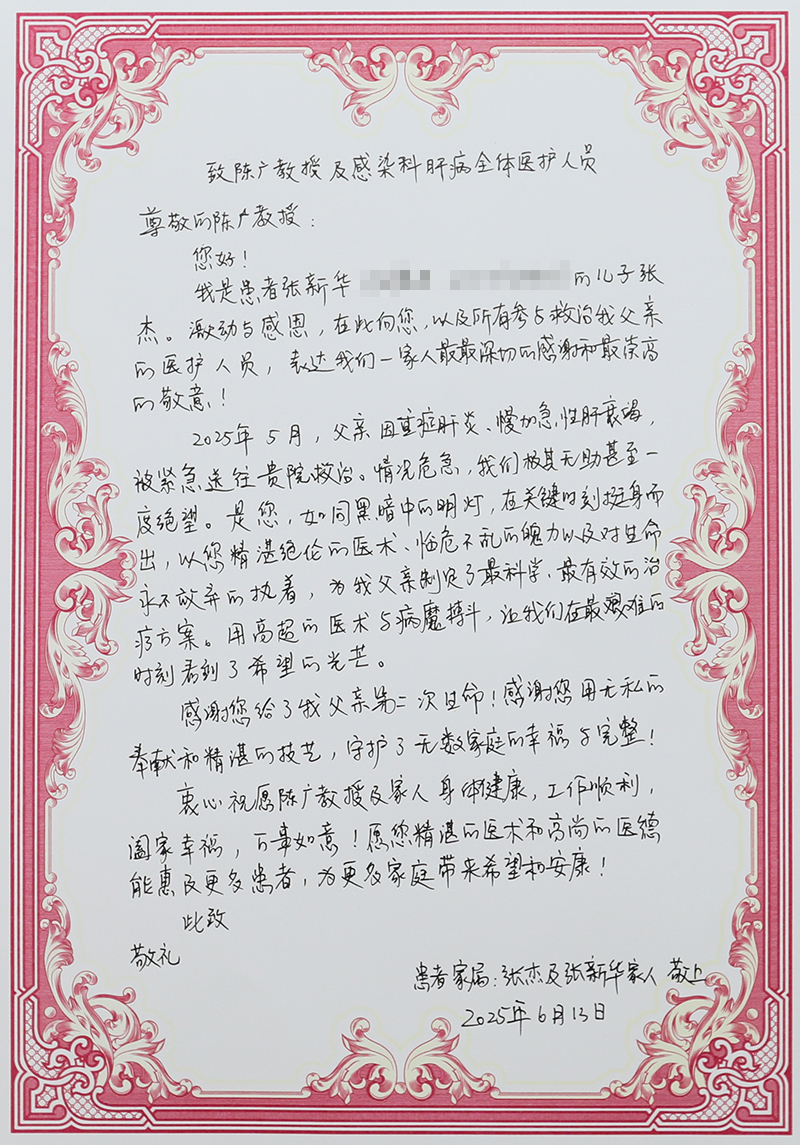 致陈广教授及感染科肝病全体医护人员
尊敬的陈广教授：
您好！
我是患者张新华 的儿子张
杰。激动与感恩，在此向您，以及所有参与救治我父亲
的医护人员，表达我们一家人最最深切的感谢和最崇高
的敬意！
2025年5月，父亲因重症肝炎、慢加急性肝衰竭，
被紧急送往贵院救治。情况危急，我们极其无助甚至一
度绝望。是您，如同黑暗中的明灯，在关键时刻挺身而
出，以您精湛绝伦的医术、临危不乱的魄力以及对生命
永不放弃的执着，为我父亲制定了最科学、最有效的治
疗方案。用高超的医术与病魔搏斗，让我们在最艰难的
时刻看到了希望的光芒。
感谢您给了我父亲第二次生命！感谢您用无私的
奉献和精湛的技艺，守护了无数家庭的幸福与完整！
衷心祝愿陈广教授及家人身体健康，工作顺利，
阖家幸福，万事如意！愿您精湛的医术和高尚的医德
能惠及更多患者，为更多家庭带来希望和安康！
此致
敬礼
患者家属：张杰及张新华家人 敬上
2025年6月13日